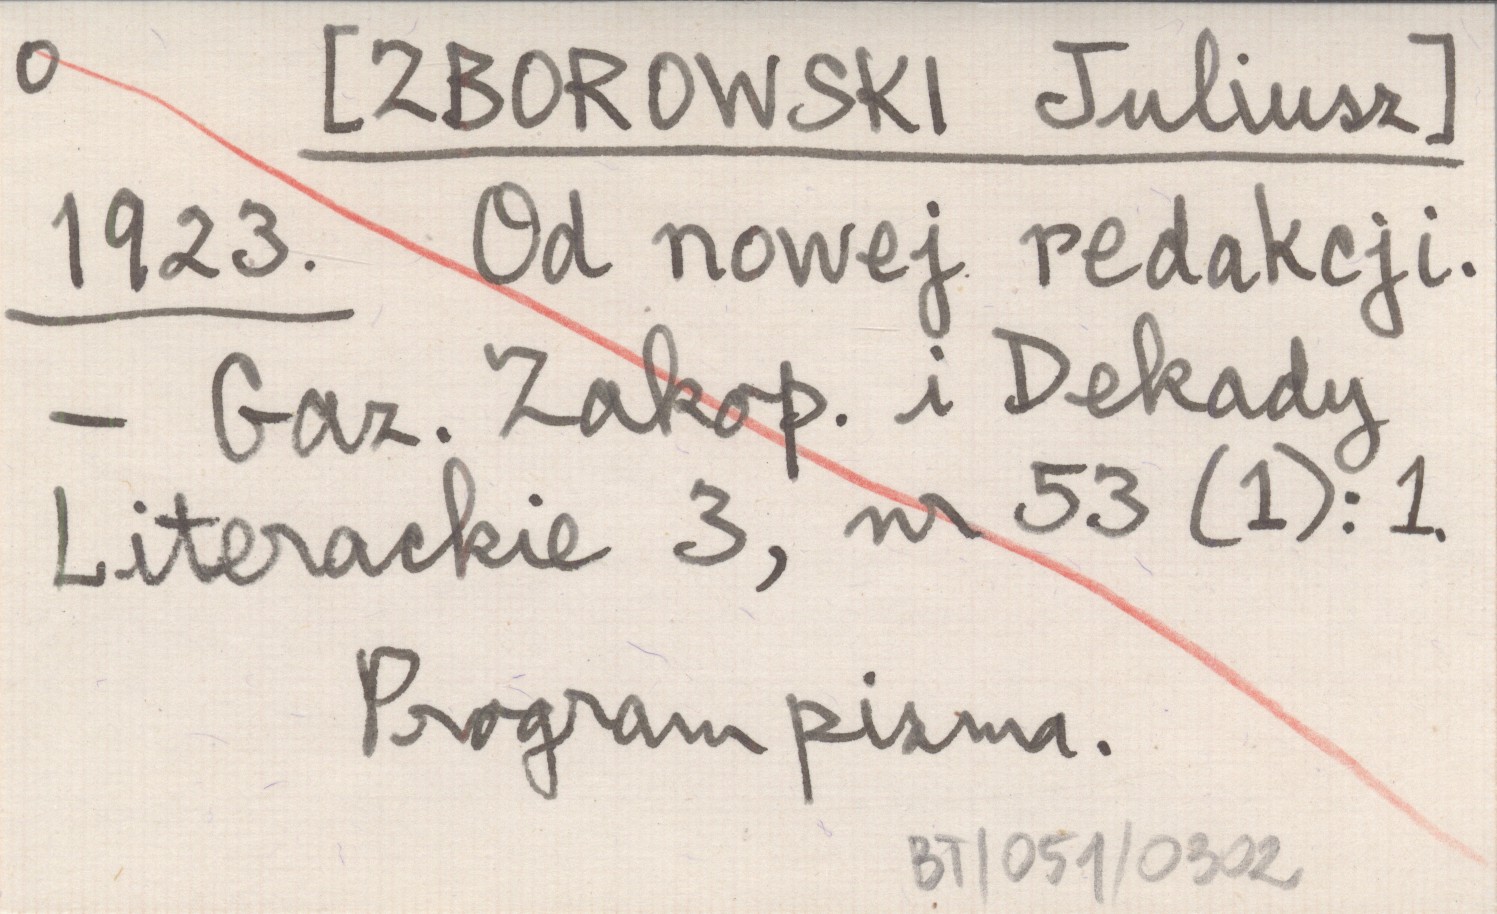 o [ZBOROWSKI Juliusz]
1923. Od nowej redakcji.
- Gaz. Zakop. i Dekady
Literackie 3, nr 53 (1): 1.
Program pisma.
BT/051/0302